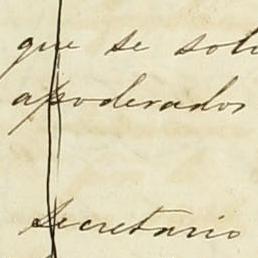 que se soli
apoderados
secretario